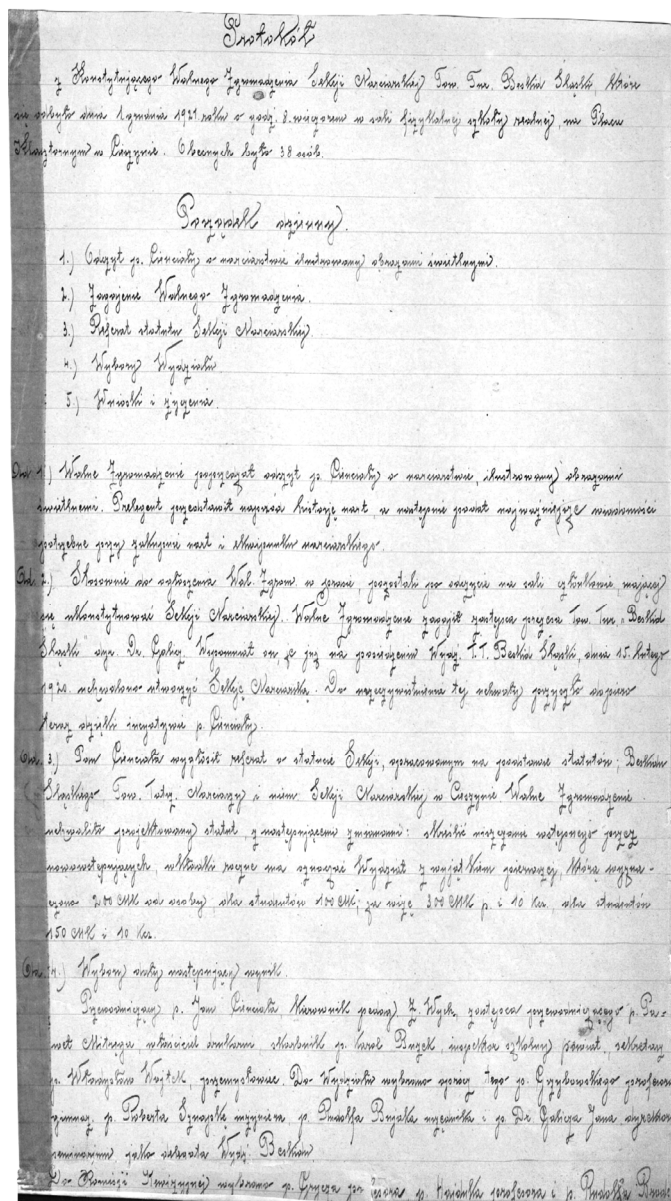 Protokół
z Konstytującego Walnego Zgromadzenia Sekcji Narciarskiej Tow. Tur. Beskid Śląski, które
się odbyło dnia 1 grudnia 1921 roku o godz. 8. wieczorem w sali fizykalnej szkoły realnej, na Placu
Klasztornym w Cieszynie. Obecnych było 38 osób.
Porządek dzienny.
1.) Odczyt p. Cienciały o narciarstwie ilustrowany obrazami świetlnymi.
2.) Zagajenie Walnego Zgromadzenia.
3.) Referat statutu Sekcji Narciarskiej
4.) Wybory Wydziału
5.) Wnioski i życzenia.
Ad. 1.) Walne Zgromadzenie poprzedzał odczyt p. Cienciały o narciarstwie, ilustrowany obrazami
świetlnemi. Prelegent przedstawił naprzód historję nart, a następnie podał najważniejsze wiadomości
potrzebne przy zakupnie nart i ekwipunku narciarskiego.
Ad. 2.) Stosownie do ogłoszenia Wal. Zgrom. w prasie, pozostali po odczycie na sali członkowie, mającej
się ukonstytuować Sekcji Narciarskiej. Walne Zgromadzenie zagaił zastępca prezesa Tow. Tur. „Beskid
Śląski" dyr. Dr. Galicz. Wspomniał on że już na posiedzeniu Wydz. T.T. Beskid Śląski, dnia 15. lutego
1920. uchwalono utworzyć Sekcję Narciarską. Do urzeczywistnienia tej uchwały przyszło dopiero
teraz dzięki inicjatywie p. Cienciały.
Ad. 3.) Pan Cienciała wygłosił referat o statucie Sekcji, opracowanym na podstawie statutów: Beskidu
Śląskiego Tow. Tatrz. Narciarzy i niem. Sekcji Narciarskiej w Cieszynie. Walne Zgromadzenie
uchwaliło projektowany statut, z następującemi zmianami: skreślić niszczenie wstępnego przez
nowowstępujących, wkładki roczne ma oznaczać Wydział z wyjątkiem pierwszej, którą wyzna-
czono 200 MK od osoby, dla studentów 100 MK; za wizę 300 MK p. i 10 Kcz, dla studentów
150 MK i 10 Kcz.
Ad. 4.) Wybory dały następujący wynik.
Przewodniczący p. Jan Cienciała kierownik pedag. Z. Wych, zastępca przewodniczącego p. Pa-
weł Mitręga właściciel drukarni skarbnik p. Karol Buzek, inspektor szkolny powiat, sekretarz
p. Władysław Wojtek, przemysłowiec. Do Wydziału wybrano oprócz tego p. Grzybowskiego profesora
gimnaz, p. Roberta Sznapkę inżyniera, p. Rudolfa Bujaka urzędnika i p. Dr. Galicza Jana dyrektora
seminarium jako delegata Wydz. Beskidu
Do Komisji Rewizyjnej wybrano p. profesora p. Hajduka profesora i p. Rudolfa